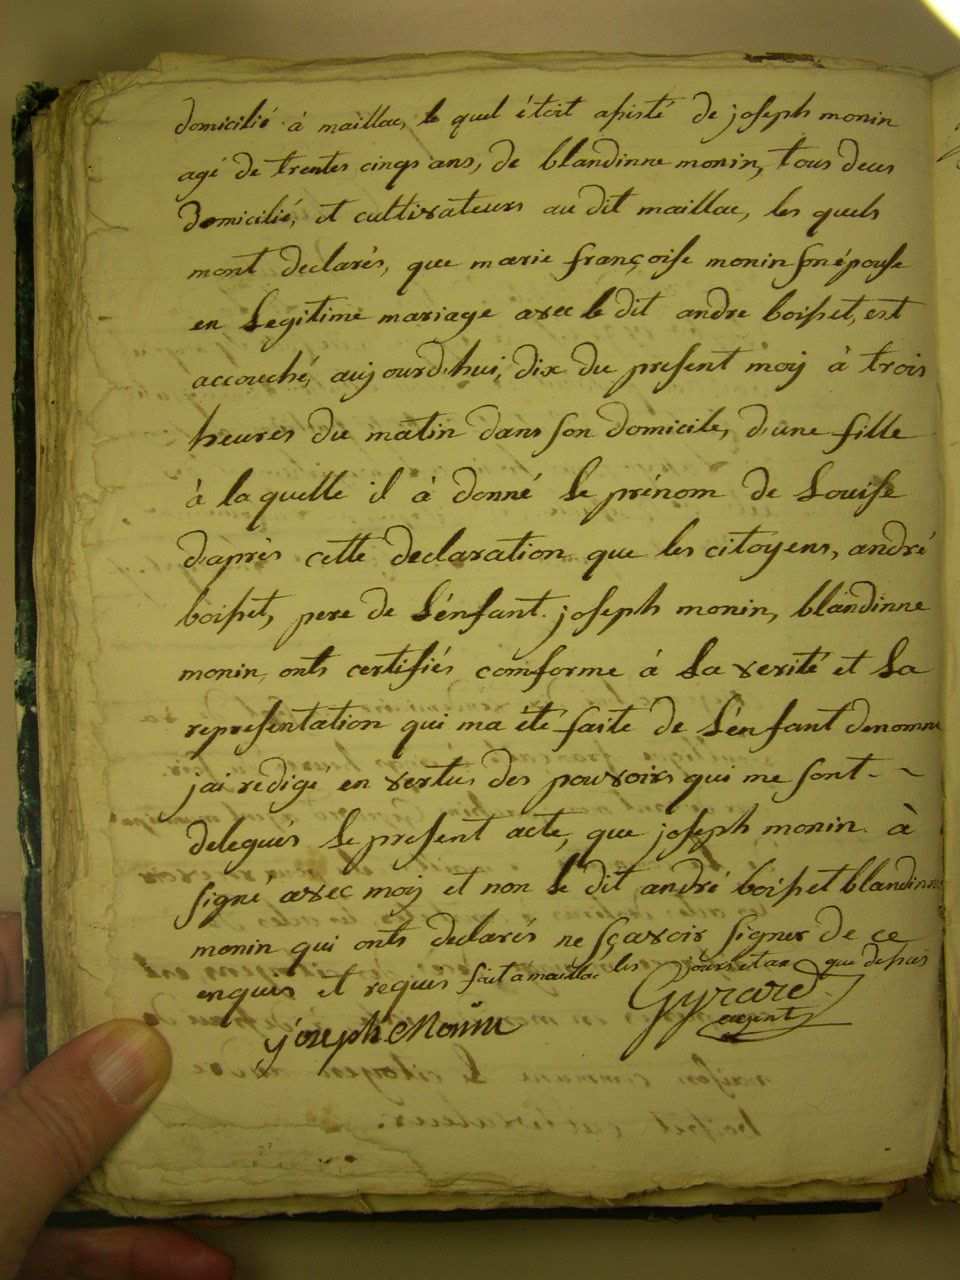 domicilié à maillac, le quel étoit assisté de joseph monin
agé de trentes cinqs ans, de blandinne monin, tous deus
domicilié, et cultivateurs au dit maillac, les quels
mont declarés, que marie françoise monin son épouse
en Legitime mariage avec le dit andre boisset, est
accouché, aujourd'hui, dix du present moij à trois
heures du matin dans son domicile, d'une fille
à la quelle il à donné le prénom de Louise
d'après cette declaration que les citoyens, andré
boisset, pere de L'énfant. joseph monin, blandinne
monin, onts certifiés comforme à La verité et La
representation qui ma été faite de L'énfant denommé
j'ai rédigé en vertus des pouvoirs qui me sont - ~
delegués le present acte, que joseph monin à
signé avec moij et non le dit andré boisset blandinne
monin qui onts declarés ne sçavoir signer de ce
enquis et requis fait a maillac les jours et an que dessus
joseph Monin
Gyrard
agent